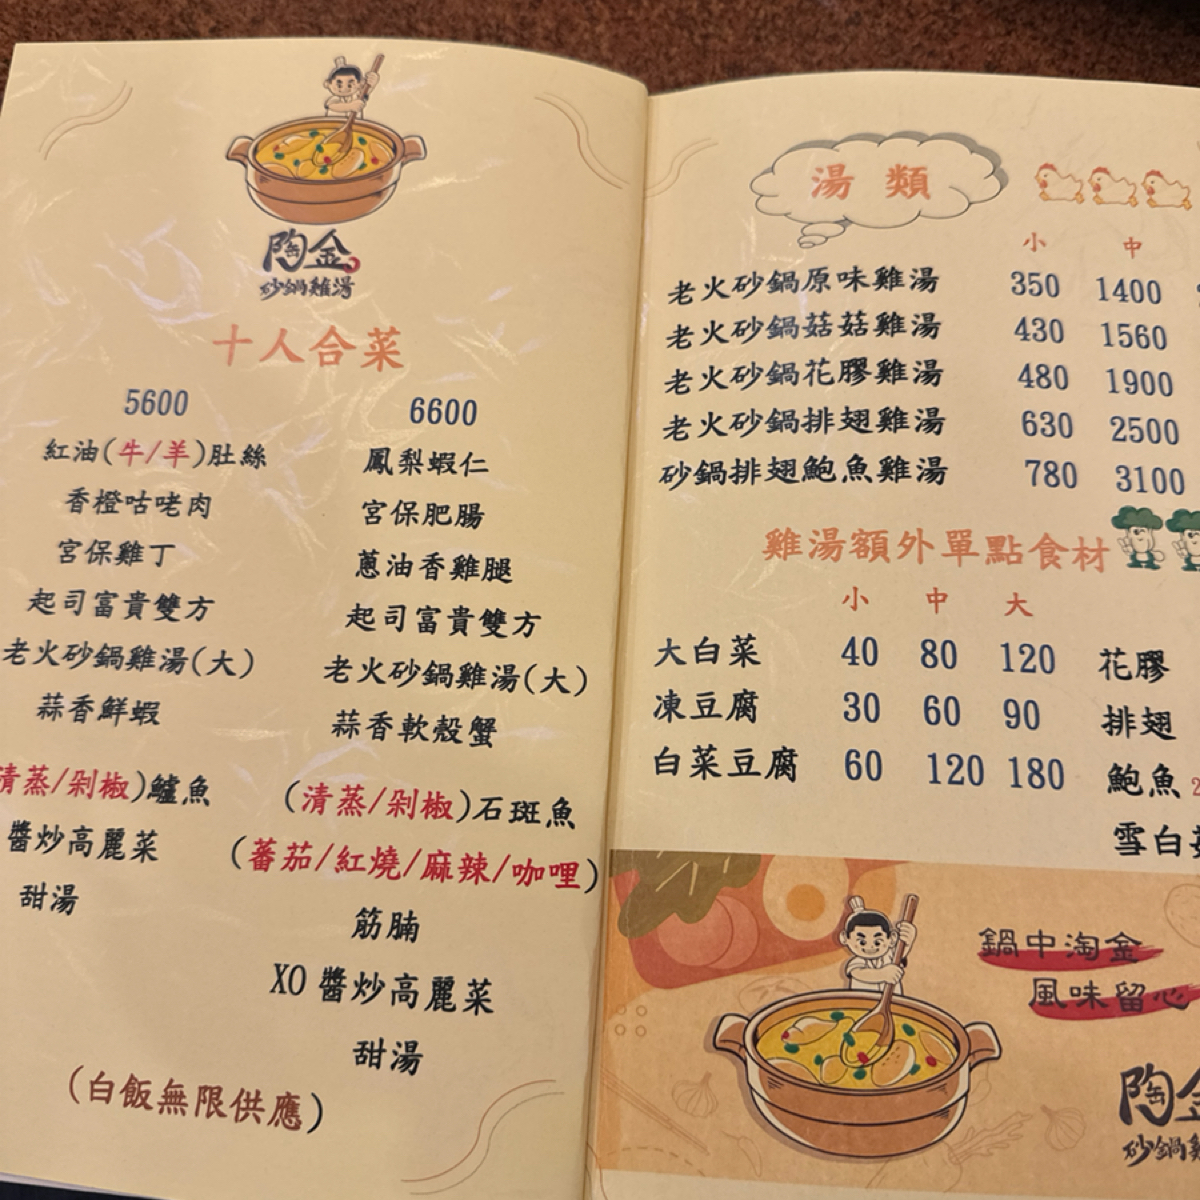 陶金
砂鍋雞湯
十人合菜
5600
紅油(牛/羊)肚絲
香橙咕咾肉
宮保雞丁
起司富貴雙方
老火砂鍋雞湯(大)
蒜香鮮蝦
清蒸/剁椒)鱸魚
醬炒高麗菜
甜湯
6600
鳳梨蝦仁
宮保肥腸
蔥油香雞腿
起司富貴雙方
老火砂鍋雞湯(大)
蒜香軟殼蟹
(清蒸/剁椒)石斑魚
(蕃茄/紅燒/麻辣/咖哩)
筋腩
XO 醬炒高麗菜
甜湯
(白飯無限供應)
湯類
小 中
老火砂鍋原味雞湯 350 1400
老火砂鍋菇菇雞湯 430 1560
老火砂鍋花膠雞湯 480 1900
老火砂鍋排翅雞湯 630 2500
砂鍋排翅鮑魚雞湯 780 3100
雞湯額外單點食材
小 中 大
大白菜 40 80 120 花膠
凍豆腐 30 60 90 排翅
白菜豆腐 60 120 180 鮑魚 2
雪白
鍋中淘金
風味留心
陶金
砂鍋雞